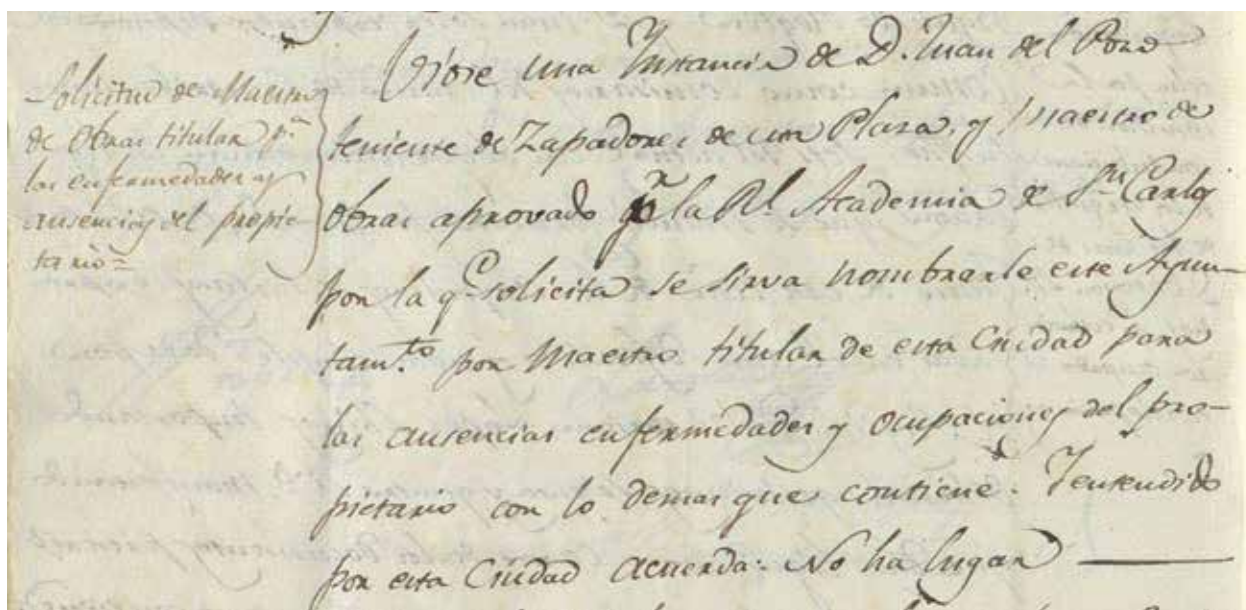 Solicitud de Maestro
de Obras titular p.ª
las enfermedades y
ausencias del propie-
tario=
Viose una Instancia de D. Juan del Pozo
teniente de Zapadores de esta Plaza, y Maestro de
Obras aprovado pr la Rl. Academia de Sn. Carlos
por la q.e solicita se sirva nombrarle este Ayun-
tam.to por Maestro titular de esta Ciudad para
las ausencias enfermedades y ocupaciones del pro-
pietario con lo demas que contiene. Yentendido
por esta Ciudad acuerda: No ha lugar